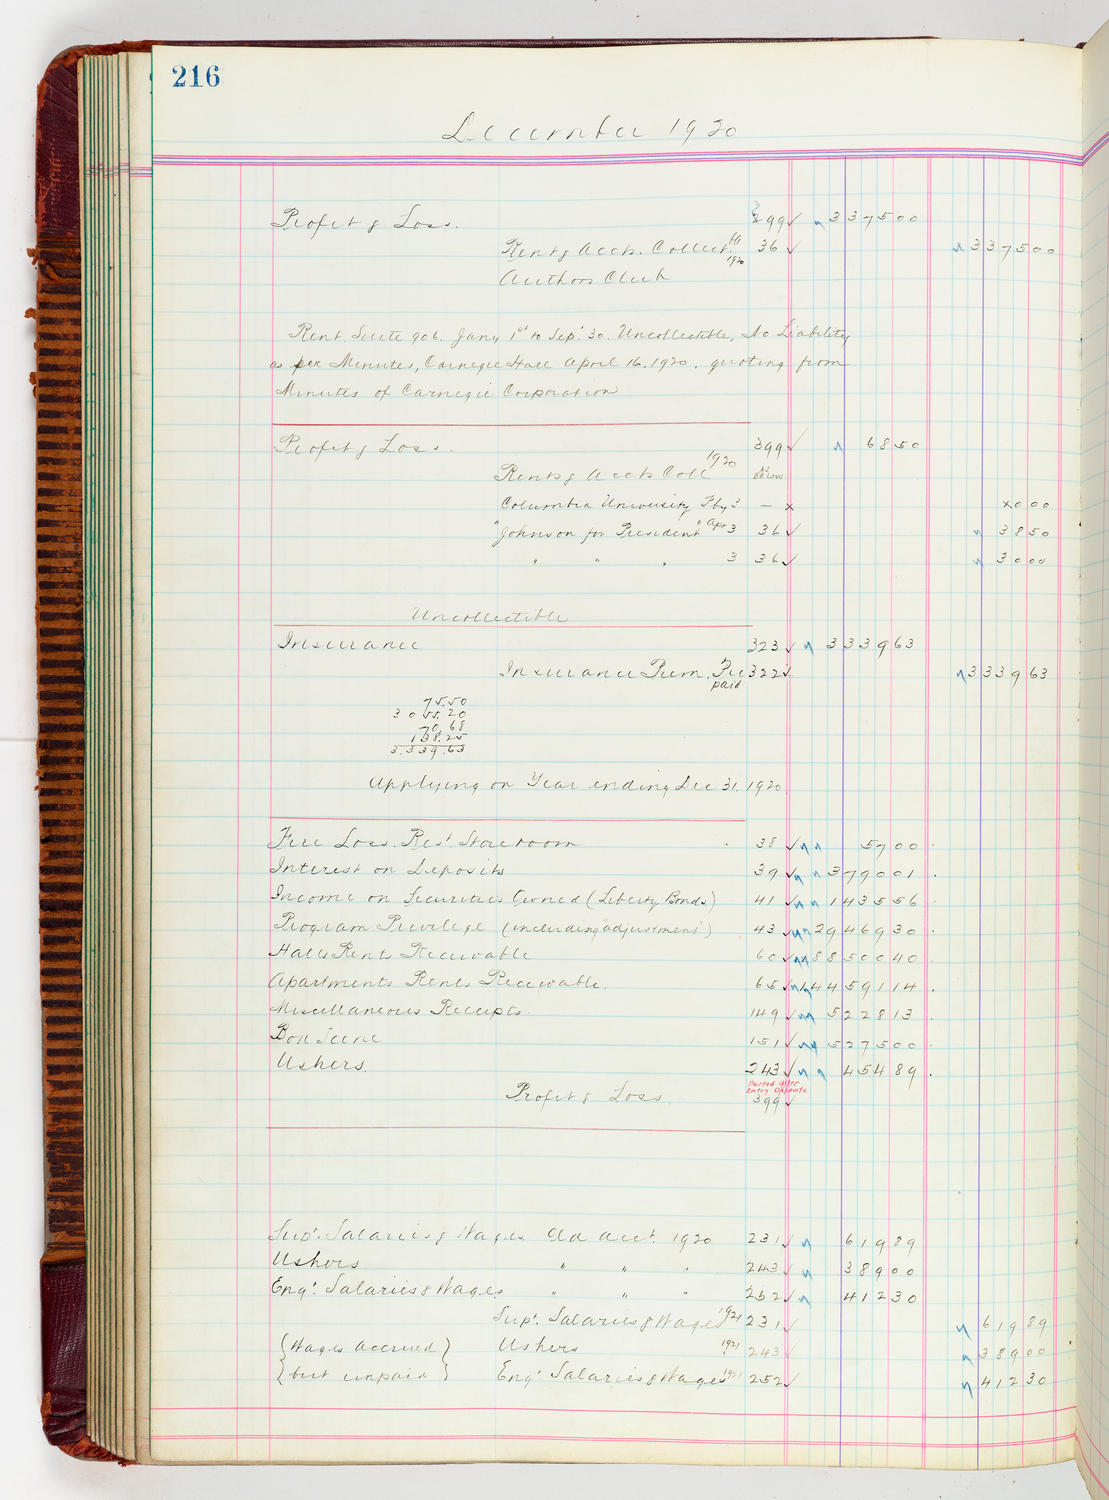 216
December 1920
Profit & Loss. 299 ✓ 3375 00
Rents & Accts. Collect. 36 ✓ 3375 00
1920
Authors Club
Rent Suite 906. Jany 1st to Sep. 30. Uncollectible, No Liability
as per Minutes, Carnegie Hall April 16. 1920. quoting from
Minutes of Carnegie Corporation
Profit & Loss. 399 ✓ 68 50
Rents & Accts Coll 1920 as below
Columbia University Fby 3 — x x0 00
"Johnson for President" Apr 3 36 ✓ 38 50
" " " 3 36 ✓ 30 00
Uncollectible
Insurance 323 ✓ 3339 63
Insurance Prem. Pre 322 ✓ 3339 63
paid
75.50
3055.20
70.68
138.25
3.339.63
Applying on Year ending Dec 31. 1920
Fire Loss. Rest. Storeroom 38 ✓ 57 00
Interest on Deposits 39 ✓ 3790 01
Income on Securities Owned (Liberty Bonds) 41 ✓ 1435 56
Program Privilege (including "adjustment") 43 ✓ 29469 30
Halls Rents Receivable 60 ✓ 88500 40
Apartments Rents Receivable. 65 ✓ 144591 14
Miscellaneous Receipts 149 ✓ 5228 13
Box Scene 151 ✓ 5275 00
Ushers. 243 ✓ 454 89
Posted after
entry opposite
Profit & Loss 399 ✓
Supt. Salaries & Wages Old acct. 1920 231 ✓ 619 89
Ushers " " " 243 ✓ 389 00
Engr. Salaries & Wages " " " 252 ✓ 412 30
Supt. Salaries & Wages 1921 231 ✓ 619 89
(Wages accrued) Ushers 1921 243 ✓ 389 00
(but unpaid) Engr. Salaries & Wages 1921 252 ✓ 412 30